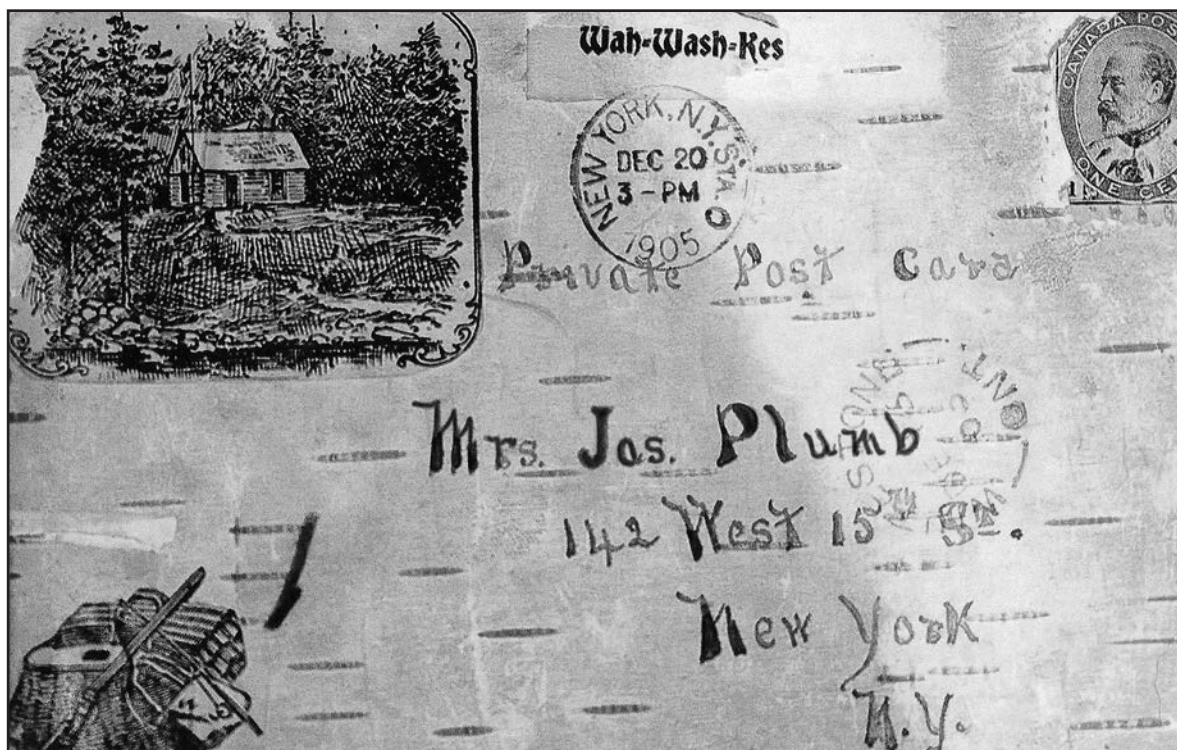 Wah-Wash-Kes
CANADA POS
ONE CE
NEW YORK, N.Y. STA. O
DEC 20
3-PM
1905
Private Post Card
ONT
Mrs. Jos. Plumb
142 West 15th St.
New York
N.Y.